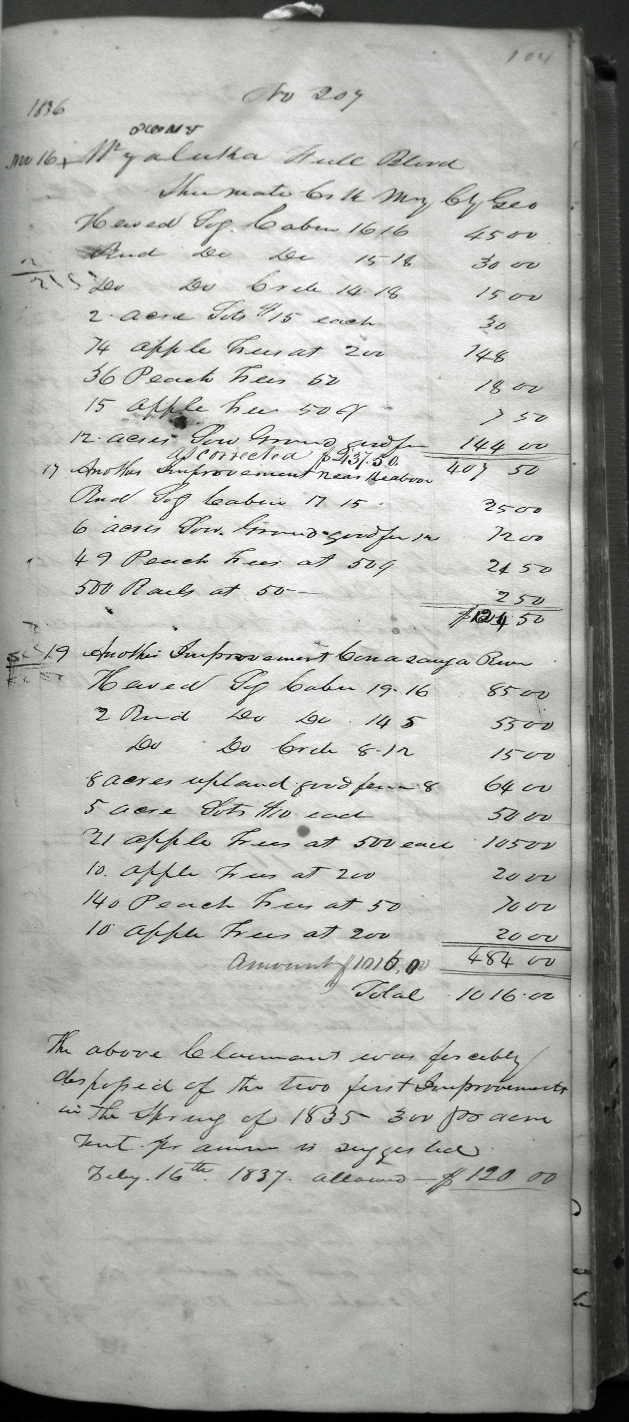 104
No 207
1836
Nov 16 Wyalutha Full Blood
Shumate Crk Mry Cty Geo
Hewed Log Cabin 16 16 45 00
Rnd Do Do 15-18 30 00
Do Do Crib 14-18 15 00
2 acre Lots $15 each 30
74 apple Trees at 200 148
36 Peach Trees 50 18 00
15 apple Trees 50 ¢ 7 50
12 acres Low Ground good fn 144 00
as corrected $437.50.
407 50
17 Another Improvement near the above
Rnd Log Cabin 17 15 25 00
6 acres Low Ground good fn 12 72 00
49 Peach Trees at 50¢ 24 50
500 Rails at 50— 2 50
$124 50
19 Another Improvement Conasauga River
Hewed Log Cabin 19-16 85 00
2 Rnd Do Do 14 5 55 00
Do Do Crib 8-12 15 00
8 acres upland good fenc 8 64 00
5 acre Lots $10 each 50 00
21 apple Trees at 500 each 105 00
10 apple Trees at 200 20 00
140 Peach Trees at 50 70 00
10 apple Trees at 200 20 00
484 00
Amount $1016.00
Total 1016.00
The above Claimant was forcibly
disposed of the two first Improvements
in the Spring of 1835 300 per acre
rent pr annum is suggested
Feby. 16th 1837. allowed — $120 00